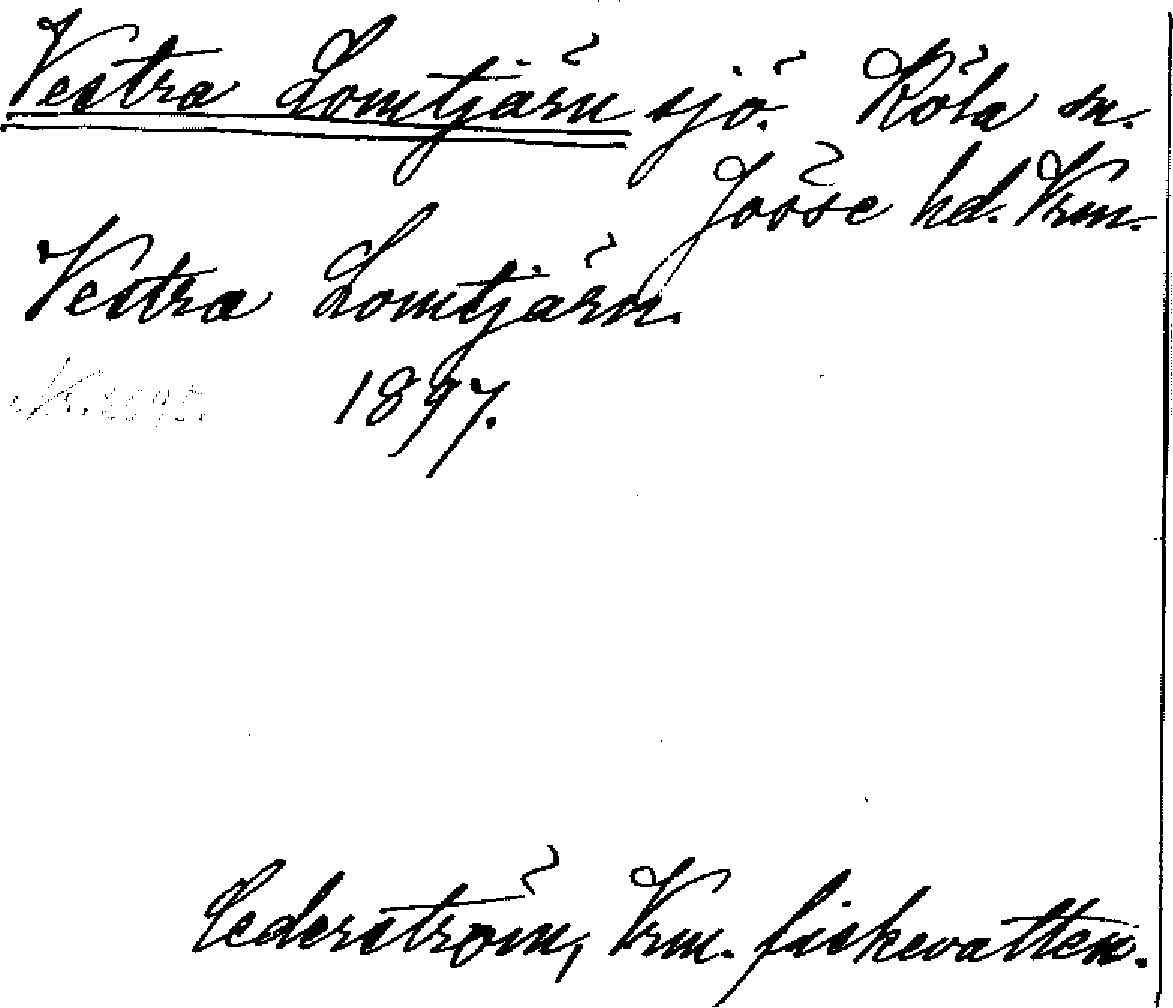 Vestra Lomtjärn sjö. Köla sn.
Jösse hd. Vrm.
Vestra Lomtjärn.
1897.
Cederström, Vrm. fiskevatten.